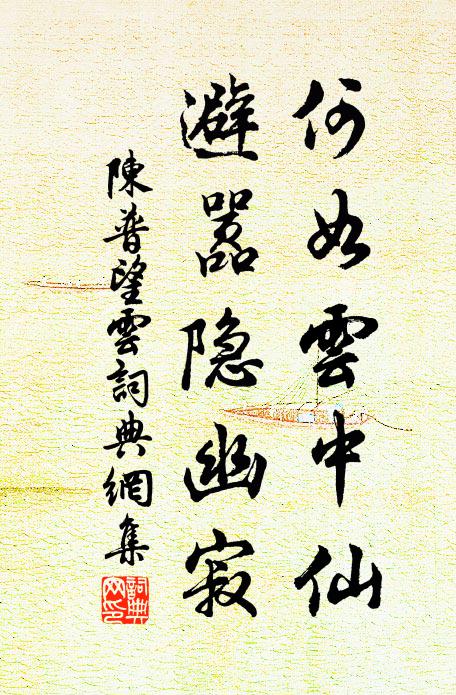 何如雲中仙
避嚣隐幽寂
陳普望雲詞典網集
詞典
网印